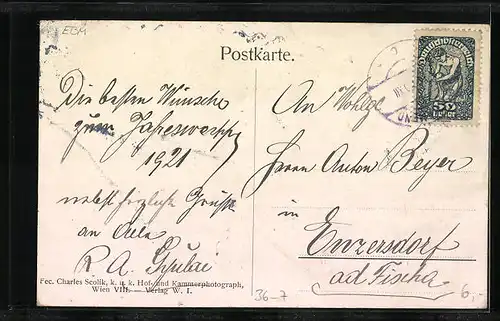 ECM
Postkarte.
Die besten Wünsche
zum Jahreswechsel
1921
nebst herzliche Grüße
an alle
R. A. Gyulai
Fec. Charles Scolik, k. u. k. Hof- und Kammerphotograph,
Wien VIII. — Verlag W. I.
Deutschösterreich
50
Heller
An Wohlg.
Herrn Anton Beyer
in
Enzersdorf
ad Fischa
36-7
6,-